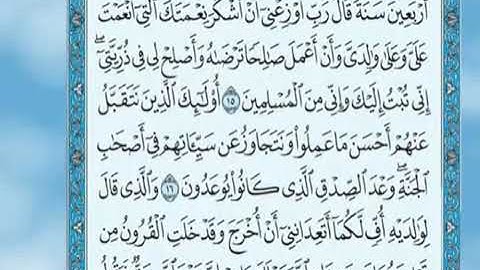 أَرْبَعِينَ سَنَةً قَالَ رَبِّ أَوْزِعْنِىٓ أَنْ أَشْكُرَ نِعْمَتَكَ ٱلَّتِىٓ أَنْعَمْتَ
عَلَىَّ وَعَلَىٰ وَٰلِدَىَّ وَأَنْ أَعْمَلَ صَٰلِحًا تَرْضَىٰهُ وَأَصْلِحْ لِى فِى ذُرِّيَّتِىٓ ۖ
إِنِّى تُبْتُ إِلَيْكَ وَإِنِّى مِنَ ٱلْمُسْلِمِينَ ١٥ أُو۟لَٰٓئِكَ ٱلَّذِينَ نَتَقَبَّلُ
عَنْهُمْ أَحْسَنَ مَا عَمِلُوا۟ وَنَتَجَاوَزُ عَن سَيِّـَٔاتِهِمْ فِىٓ أَصْحَٰبِ
ٱلْجَنَّةِ ۖ وَعْدَ ٱلصِّدْقِ ٱلَّذِى كَانُوا۟ يُوعَدُونَ ١٦ وَٱلَّذِى قَالَ
لِوَٰلِدَيْهِ أُفٍّ لَّكُمَآ أَتَعِدَانِنِىٓ أَنْ أُخْرَجَ وَقَدْ خَلَتِ ٱلْقُرُونُ مِن